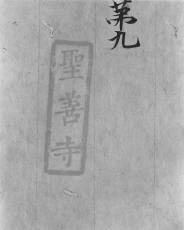 第九
聖善寺